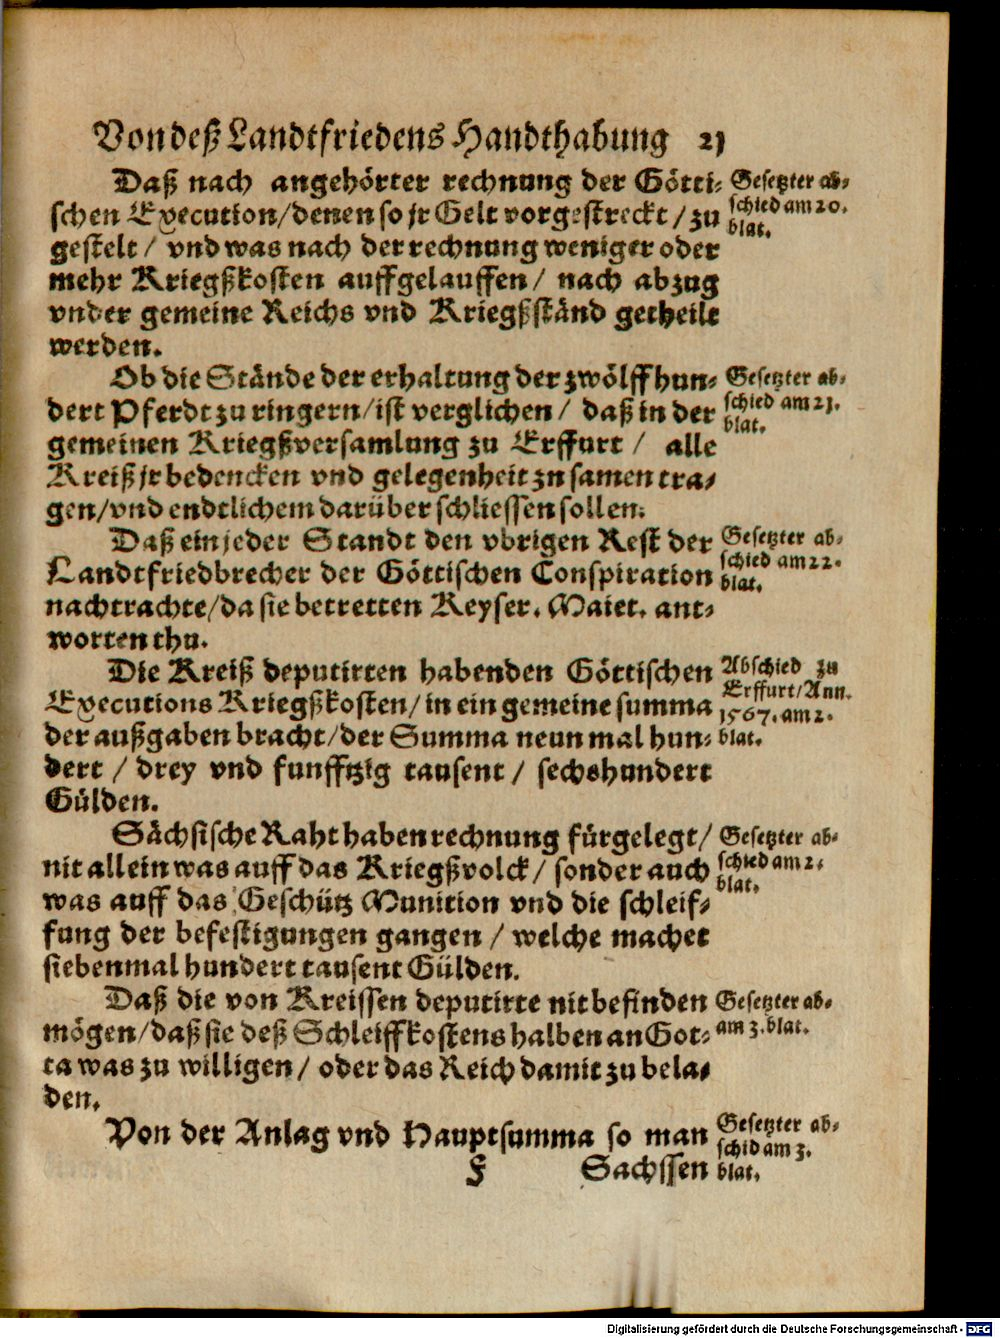 Von deß Landtfriedens Handthabung 21
Daß nach angehörter rechnung der Götti-
schen Execution/denen so jr Gelt vorgestreckt/zu
gestelt/ vnd was nach der rechnung weniger oder
mehr Kriegßkosten auffgelauffen/ nach abzug
vnder gemeine Reichs vnd Kriegßständ getheilt
werden.
Gesetzter ab-
schied am 20.
blat.
Ob die Stände der erhaltung der zwölff hun-
dert Pferdt zu ringern/ist verglichen/ daß in der
gemeinen Kriegßversamlung zu Erffurt/ alle
Kreiß jr bedencken vnd gelegenheit zusamen tra-
gen/vnd endtlichem darüber schliessen sollen.
Gesetzter ab-
schied am 21.
blat.
Daß ein jeder Standt den vbrigen Rest der
Landtfriedbrecher der Göttischen Conspiration
nachtrachte/da sie betretten Keyser. Maiet. ant-
worten thu.
Gesetzter ab-
schied am 22.
blat.
Die Kreiß deputirten habenden Göttischen
Executions Kriegßkosten/in ein gemeine summa
der außgaben bracht/der Summa neun mal hun-
dert/ drey vnd funfftzig tausent/ sechshundert
Gülden.
Abschied zu
Erffurt/Ann.
1567. am 2.
blat.
Sächsische Raht haben rechnung fürgelegt/
nit allein was auff das Kriegßvolck/ sonder auch
was auff das Geschütz Munition vnd die schleif-
fung der befestigungen gangen/ welche machet
siebenmal hundert tausent Gülden.
Gesetzter ab-
schied am 2.
blat.
Daß die von Kreissen deputirte nit befinden
mögen/daß sie deß Schleiffkostens halben an Got-
ta was zu willigen/ oder das Reich damit zu bela-
den.
Gesetzter ab-
am 3. blat.
Von der Anlag vnd Hauptsumma so man
Gesetzter ab-
schid am 3.
blat.
F Sachssen
Digitalisierung gefördert durch die Deutsche Forschungsgemeinschaft - DFG